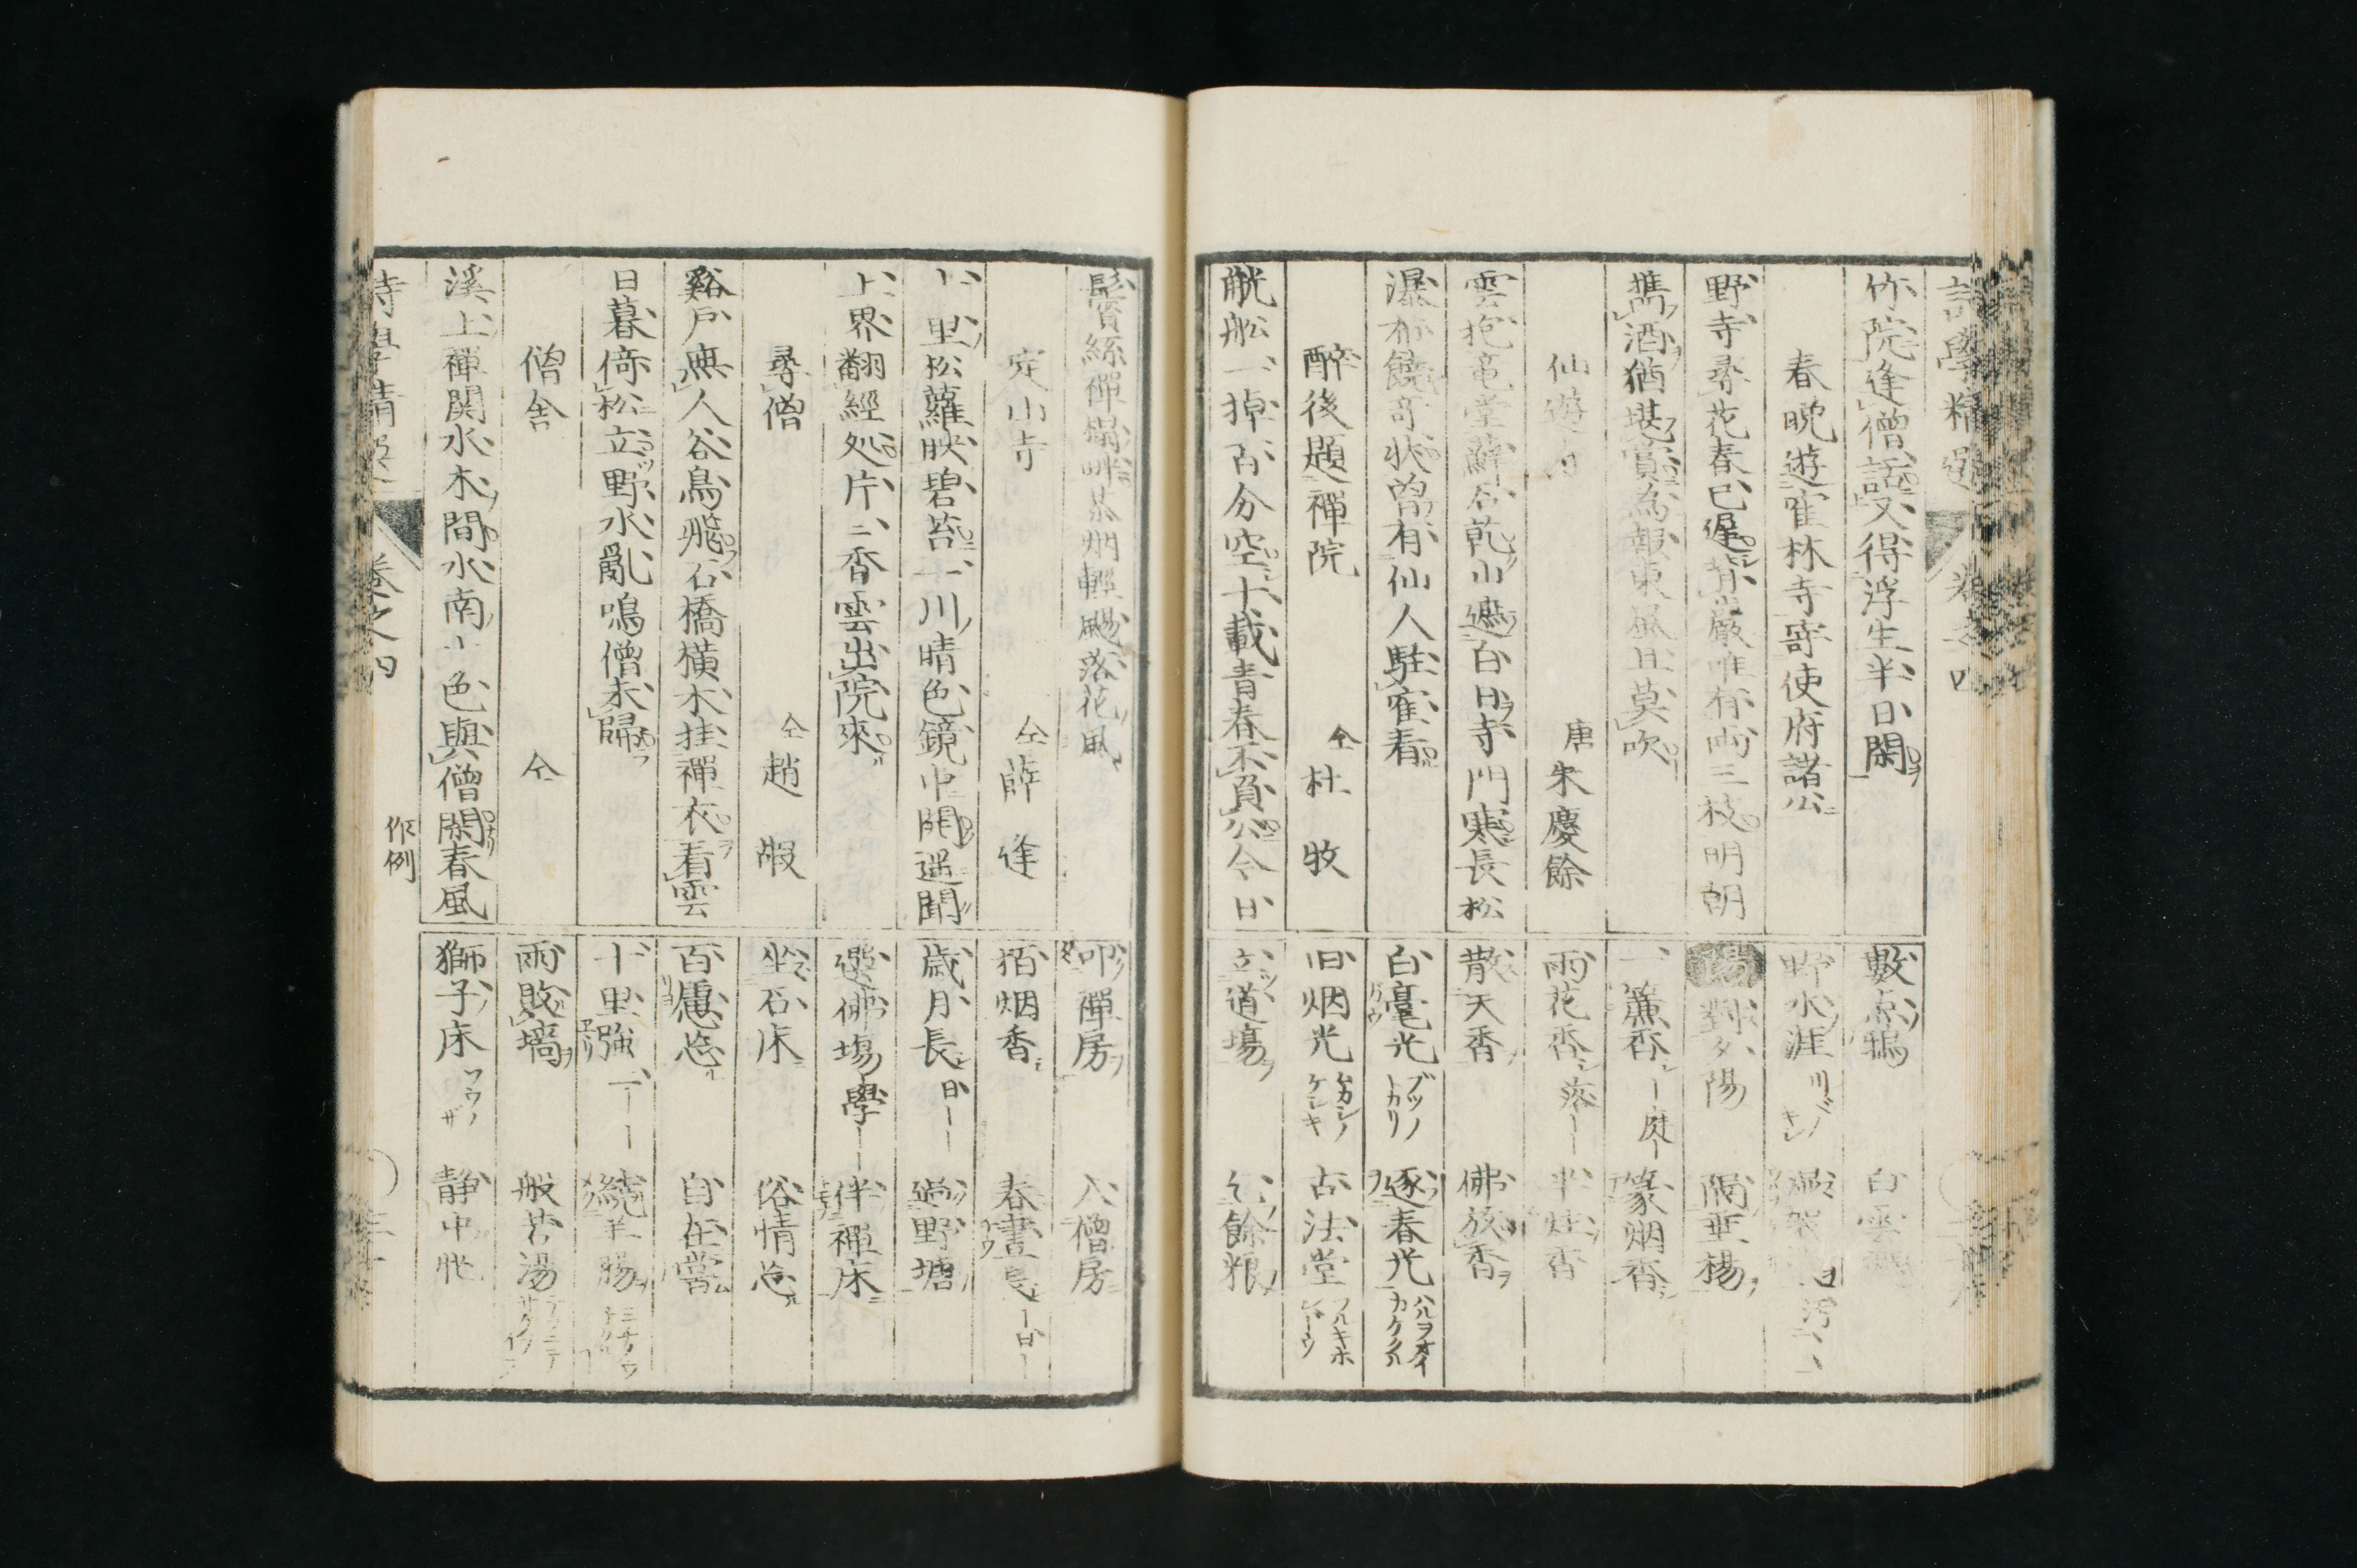 詩學精選 卷之四
竹院逢僧話又得浮生半日閑
春晩遊隺林寺寄使府諸公
野寺尋花春已遲背巖唯有兩三枝明朝
攜酒猶堪賞為報東風且莫吹
仙遊寺
唐 朱慶餘
雲抱龕堂蘚石乾山遮白日寺門寒長松
瀑布饒奇狀曽有仙人駐隺看
醉後題禪院
仝 杜牧
觥舩一掉百分空十載青春不負公今日
數点鴉 白雲
野水涯
對夕陽 隔垂楊
一簾香 庭 篆烟香
雨花香 落 半炷香
散天香 佛放香
白毫光 ブツノトカリ 逐春光 ハルヲオイカケタル
旧烟光 ムカシノケシキ 古法堂
立道場 乞餘粮
鬢絲禪榻畔茶烟輕颺落花風
定山寺
仝 薛逢
十里松蘿映碧苔一川晴色鏡中開遥聞
上界翻經処片二香雲出院來
尋僧
仝 趙嘏
谿戸無人谷鳥飛石橋橫木挂禪衣看雲
日暮倚松立野水亂鳴僧未歸
僧舎
仝
溪上禪関水木間水南山色與僧閑春風
叩禪房 入僧房
栢烟香 春晝長 日
歳月長 日 過野塘
選佛場 學 伴禪床
坐石床 俗情忘
百慮忘 自在嘗
十里強 繞羊腸
雨敗墻 般若湯
獅子床 静中忙
詩學精選 卷之四
作例